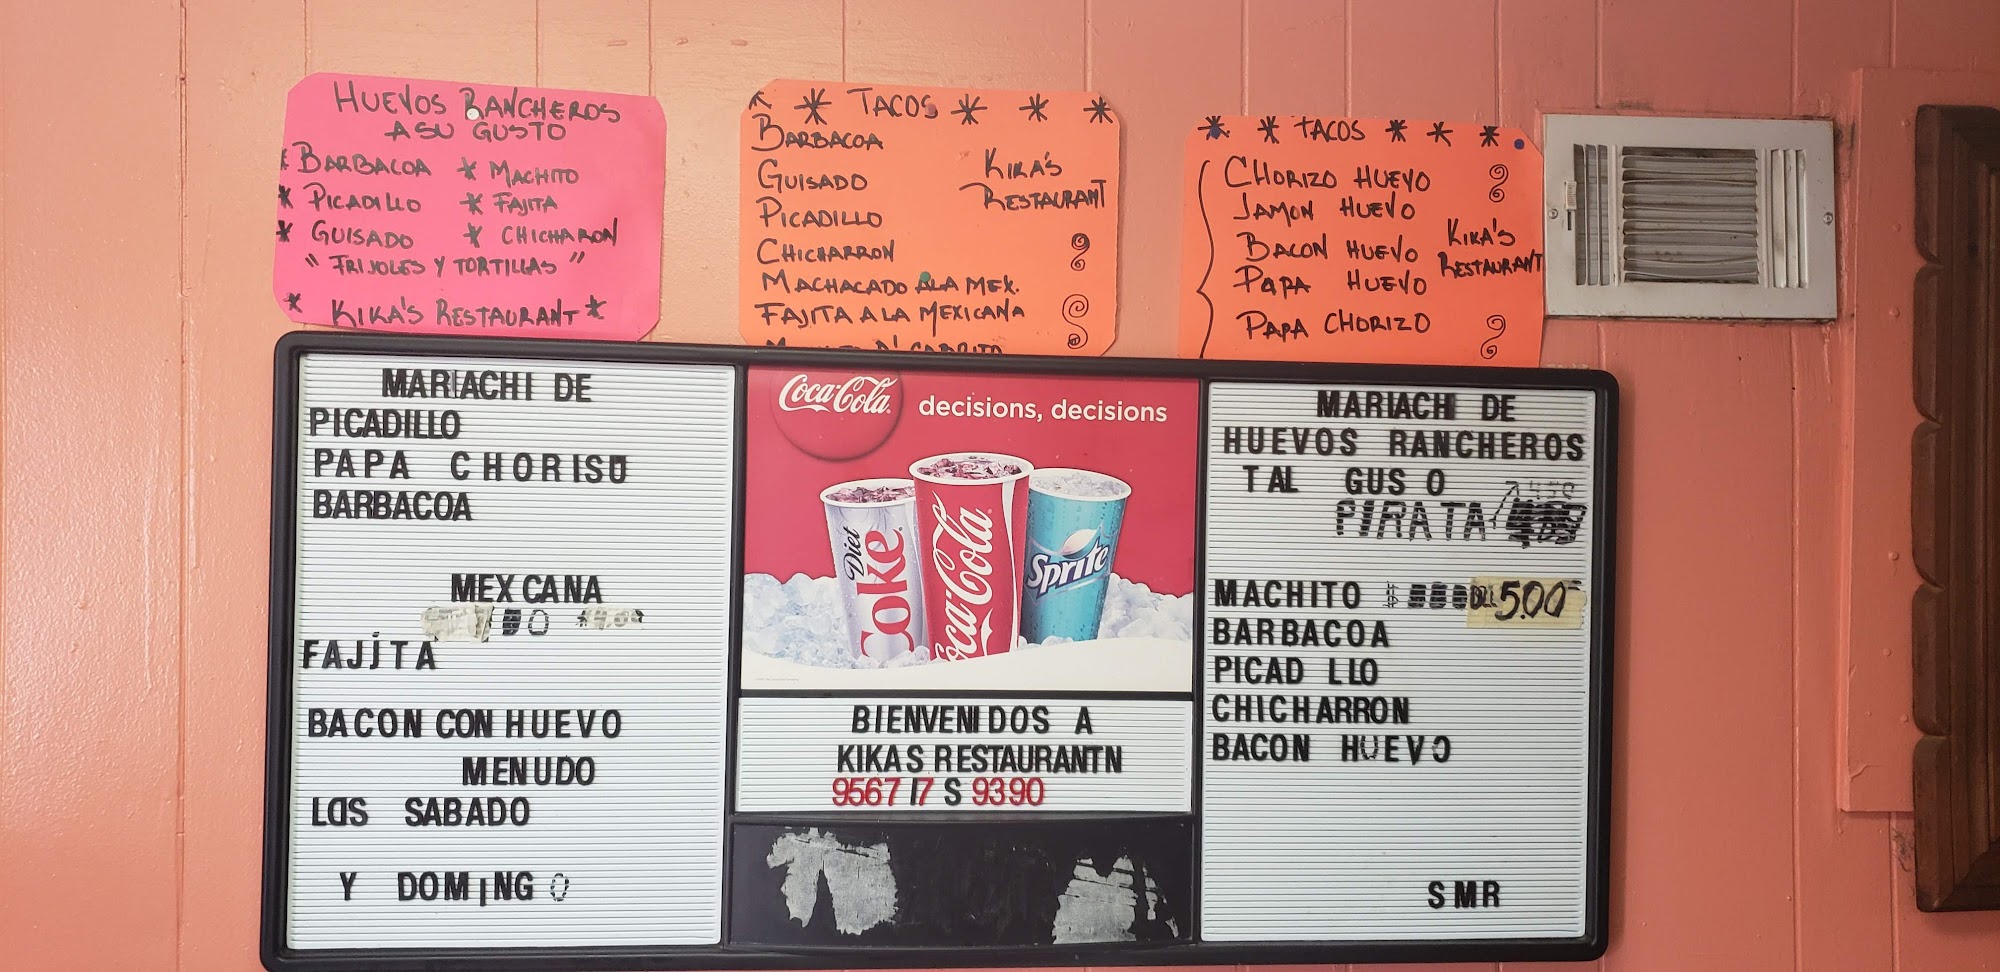 HUEVOS RANCHEROS
A SU GUSTO
* BARBACOA * MACHITO
* PICADILLO * FAJITA
* GUISADO * CHICHARON
" FRIJOLES Y TORTILLAS "
* KIKA'S RESTAURANT *
* * TACOS * * *
BARBACOA
GUISADO
PICADILLO
CHICHARRON
MACHACADO A LA MEX.
FAJITA A LA MEXICANA
KIKA'S
RESTAURANT
* * TACOS * * *
CHORIZO HUEVO
JAMON HUEVO
BACON HUEVO
PAPA HUEVO
PAPA CHORIZO
KIKA'S
RESTAURANT
MARIACHI DE
PICADILLO
PAPA CHORISO
BARBACOA
MEX CANA
FAJITA
BACON CON HUEVO
MENUDO
LOS SABADO
Y DOMINGO
Coca-Cola
decisions, decisions
Diet Coke
Coca-Cola
Sprite
BIENVENIDOS A
KIKAS RESTAURANTN
9567 17 S 9390
MARIACHI DE
HUEVOS RANCHEROS
TAL GUS O
PIRATA
MACHITO 5.00
BARBACOA
PICAD LLO
CHICHARRON
BACON HUEVO
SMR